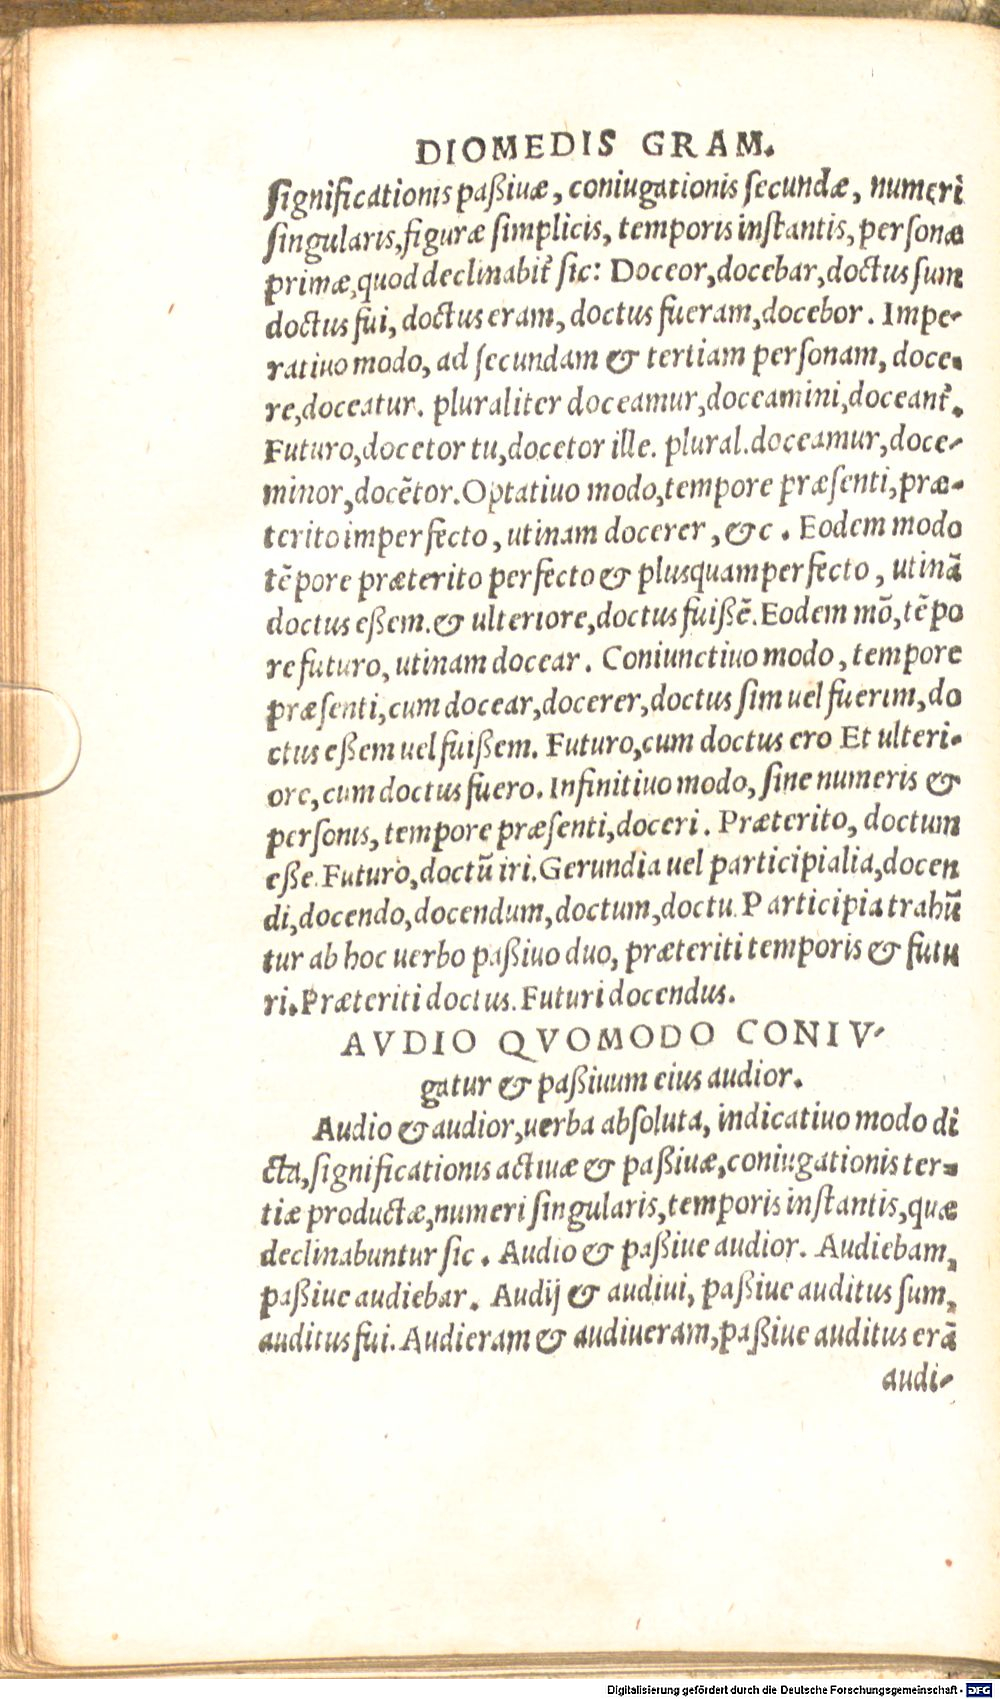 DIOMEDIS GRAM.
significationis paßiuæ, coniugationis secundæ, numeri
singularis, figuræ simplicis, temporis instantis, personæ
primæ, quod declinabit᷑ sic: Doceor, docebar, doctus sum
doctus fui, doctus eram, doctus fueram, docebor. Impe-
ratiuo modo, ad secundam & tertiam personam, doce-
re, doceatur. pluraliter doceamur, doceamini, doceant᷑.
Futuro, docetor tu, docetor ille. plural. doceamur, doce-
minor, docẽtor. Optatiuo modo, tempore præsenti, præ-
terito imperfecto, utinam docerer, &c. Eodem modo
tẽpore præterito perfecto & plusquamperfecto, utinã
doctus eßem. & ulteriore, doctus fuißẽ. Eodem mõ, tẽpo
re futuro, utinam docear. Coniunctiuo modo, tempore
præsenti, cum docear, docerer, doctus sim uel fuerim, do
ctus eßem uel fuißem. Futuro, cum doctus ero Et ulteri-
ore, cum doctus fuero. Infinitiuo modo, sine numeris &
personis, tempore præsenti, doceri. Præterito, doctum
eße. Futuro, doctũ iri. Gerundia uel participialia, docen
di, docendo, docendum, doctum, doctu. Participia trahũ
tur ab hoc uerbo paßiuo duo, præteriti temporis & futu
ri. Præteriti doctus. Futuri docendus.
AVDIO QVOMODO CONIV-
gatur & paßiuum eius audior.
Audio & audior, uerba absoluta, indicatiuo modo di
cta, significationis actiuæ & paßiuæ, coniugationis ter-
tiæ productæ, numeri singularis, temporis instantis, quæ
declinabuntur sic. Audio & paßiue audior. Audiebam,
paßiue audiebar. Audij & audiui, paßiue auditus sum,
auditus fui. Audieram & audiueram, paßiue auditus erã
audi-
Digitalisierung gefördert durch die Deutsche Forschungsgemeinschaft - DFG